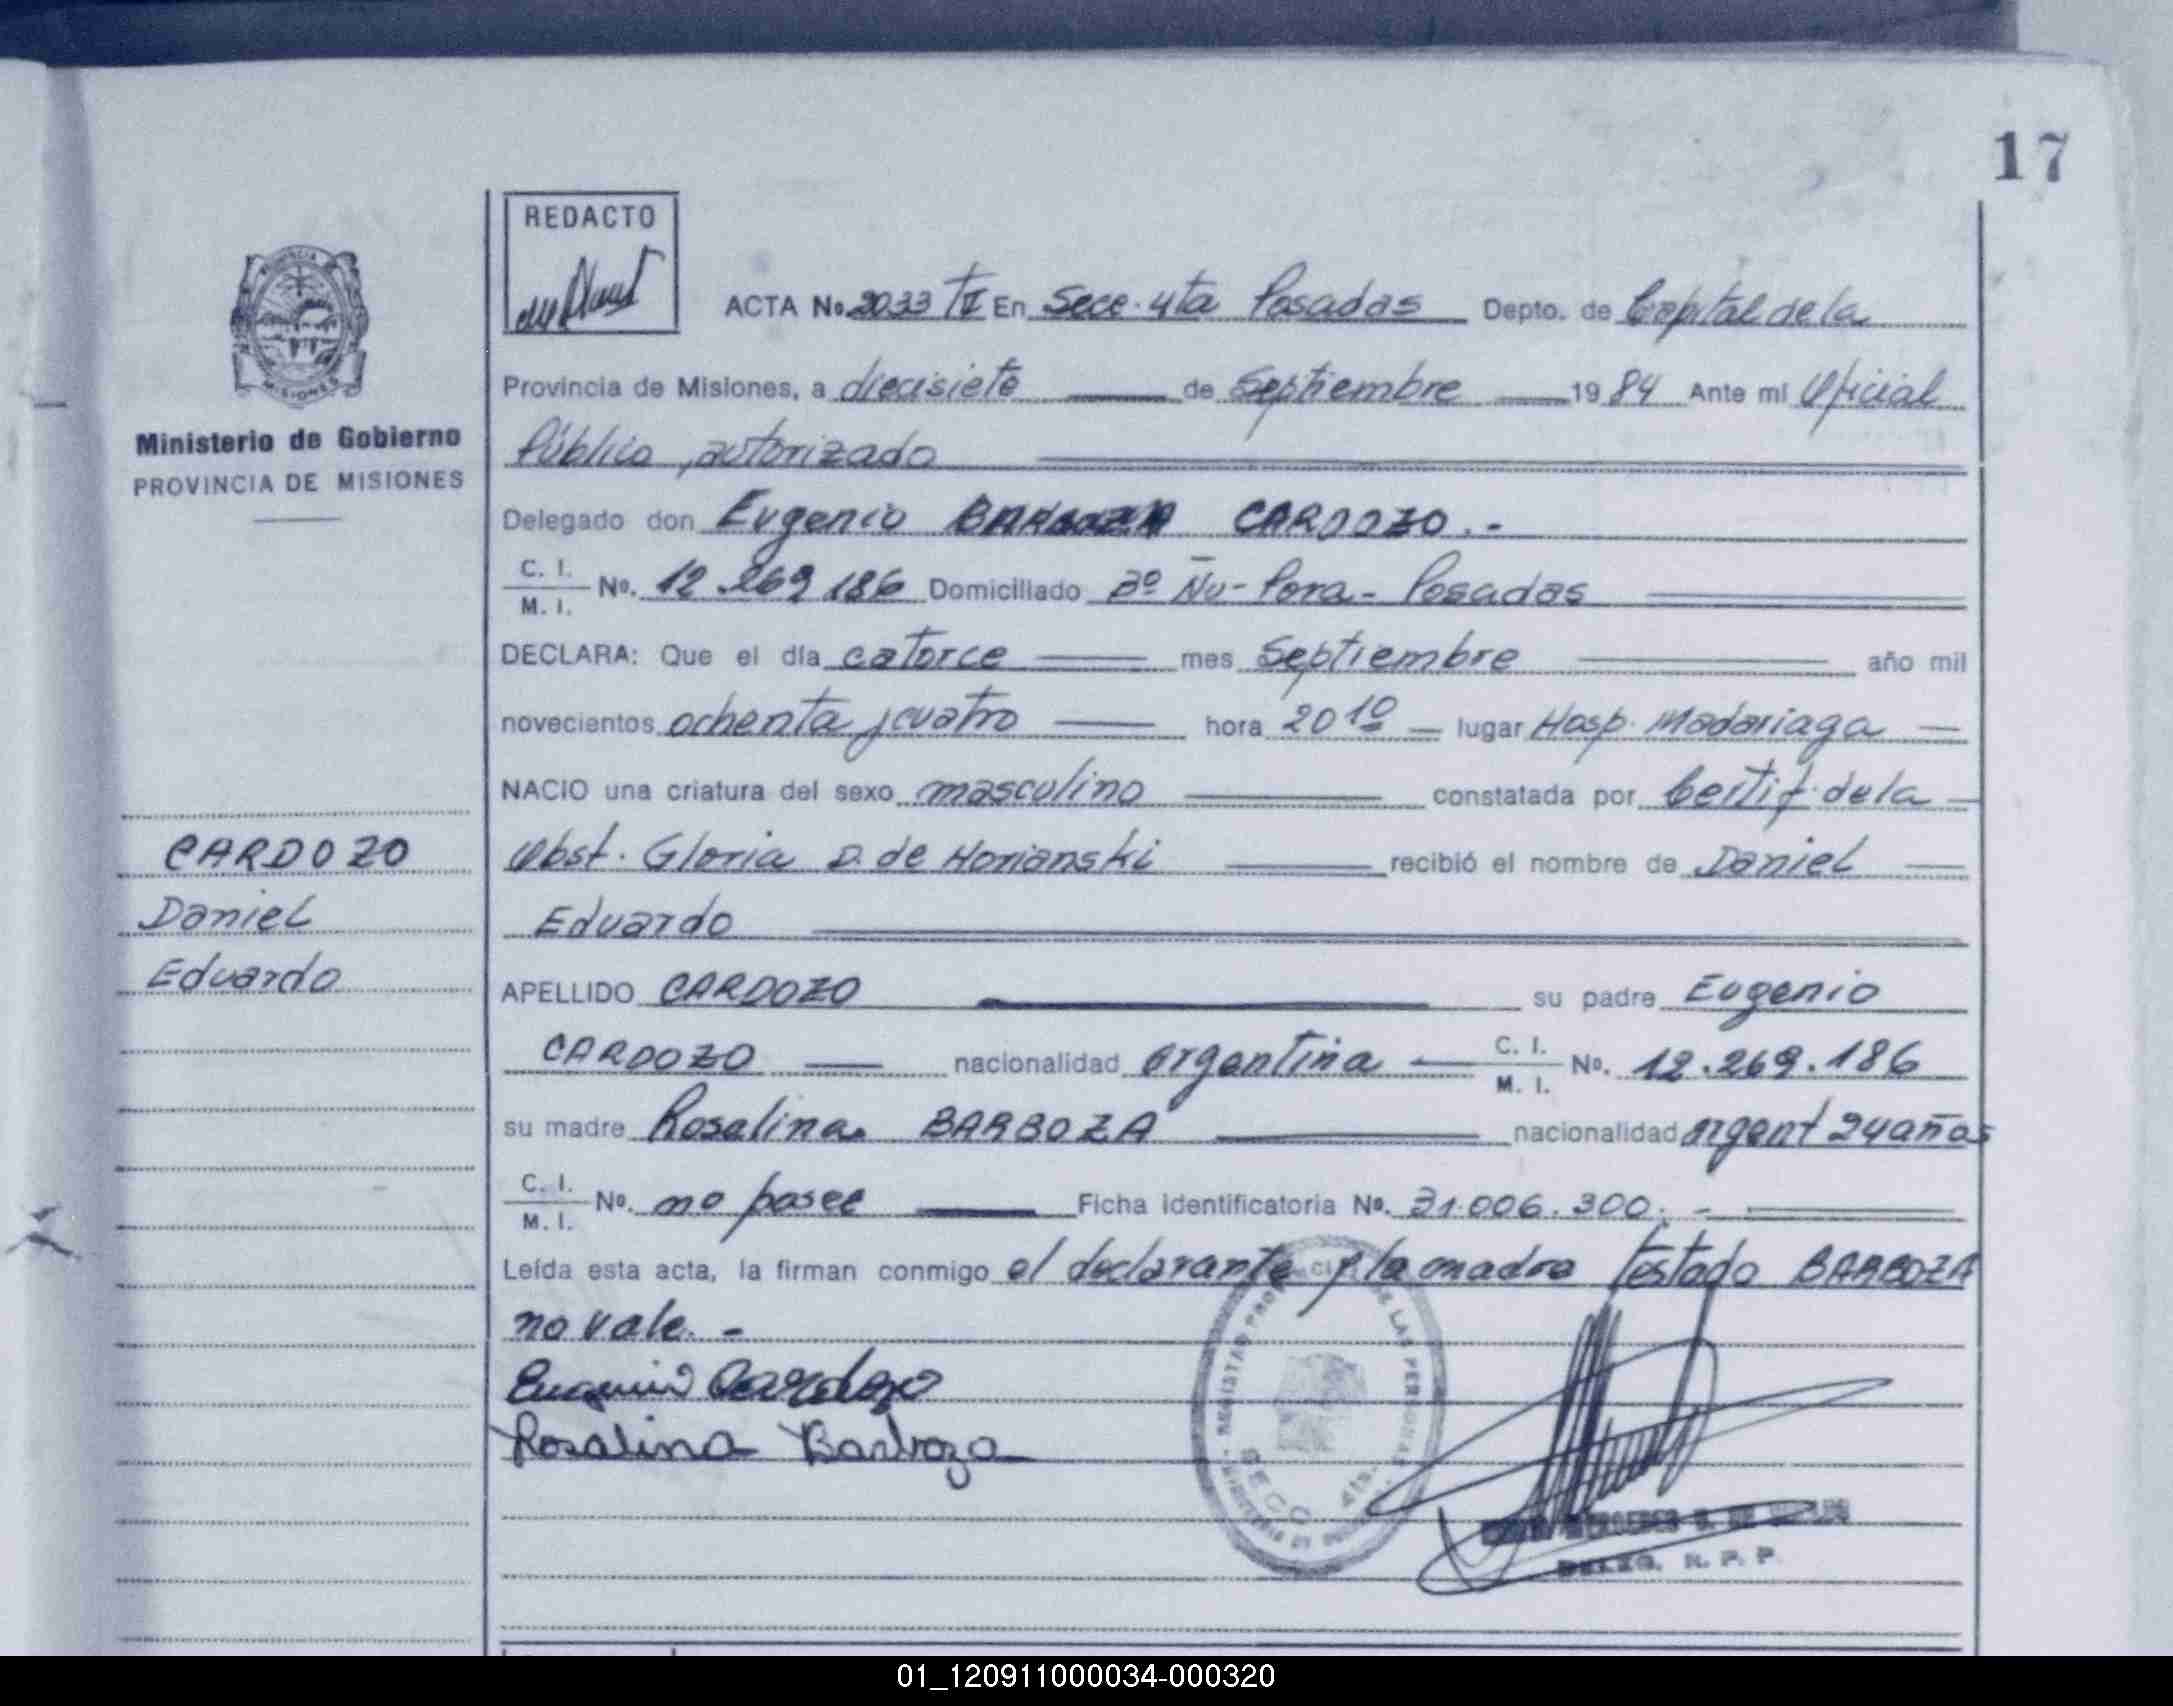 17
REDACTO
ACTA No. 2033 TI En Secc. 4ta Posadas Depto. de Capital de la
Provincia de Misiones, a diecisiete de Septiembre 1984 Ante mi Oficial
Público, autorizado
Delegado don Eugenio BARBOZA CARDOZO.-
C. I. M. I. No. 12.269.186 Domiciliado Bº Ñu-Pora- Posadas
DECLARA: Que el día catorce mes Septiembre año mil
novecientos ochenta y cuatro hora 20 10 lugar Hosp. Madariaga
NACIO una criatura del sexo masculino constatada por Certif. de la
Obst. Gloria D. de Horianski recibió el nombre de Daniel
Eduardo
APELLIDO CARDOZO su padre Eugenio
CARDOZO nacionalidad argentina C. I. M. I. No. 12.269.186
su madre Rosalina BARBOZA nacionalidad argent 24 años
C. I. M. I. No. no posee Ficha identificatoria No. 31.006.300.-
Leída esta acta, la firman conmigo el declarante y la madre Testado BARBOZA
no vale.-
Eugenio Cardozo
Rosalina Barboza
PROVINCIA
MISIONES
Ministerio de Gobierno
PROVINCIA DE MISIONES
CARDOZO
Daniel
Eduardo
REGISTRO DE LAS PERSONAS
SECC. 4ta.
DELEG. R. P. P.
01_120911000034-000320